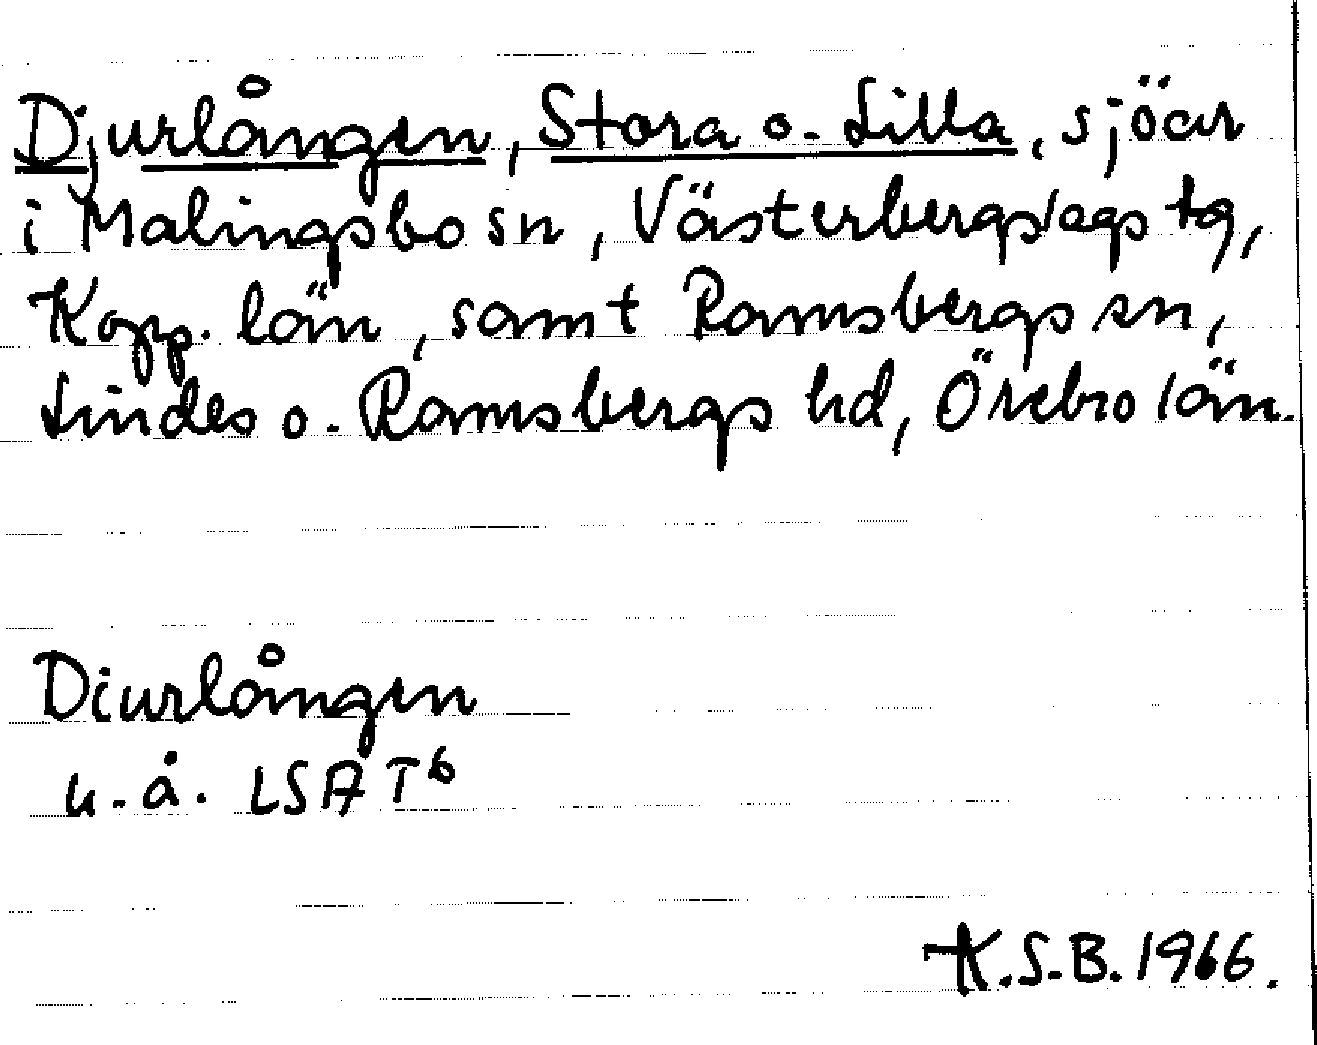 Djurlången, Stora o. Lilla, sjöar
i Malingsbo sn, Västerbergslags tg,
Kopp. län, samt Ramsbergs sn,
Lindes o. Ramsbergs hd, Örebro län.
Diurlången
u. å. LSA T6
K.S.B. 1966.